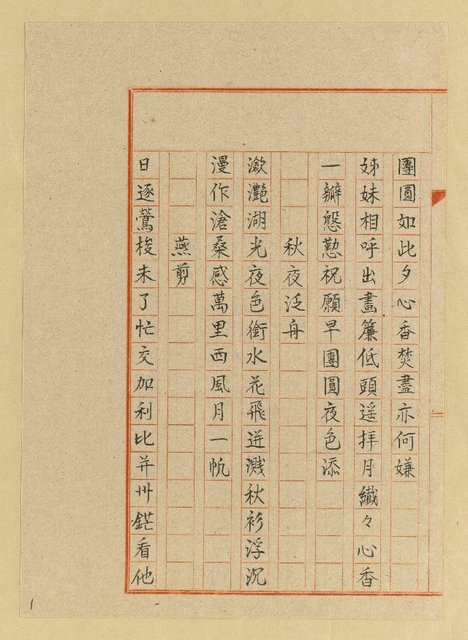 團圓如此夕心香焚盡亦何嫌
姊妹相呼出畫簾低頭遥拜月纖々心香
一瓣慇懃祝願早團圓夜色添
秋夜泛舟
潋灔湖光夜色銜水花飛迸濺秋衫浮沉
漫作滄桑感萬里西風月一帆
燕剪
日逐鶯梭未了忙交加利比并州鋩看他
1